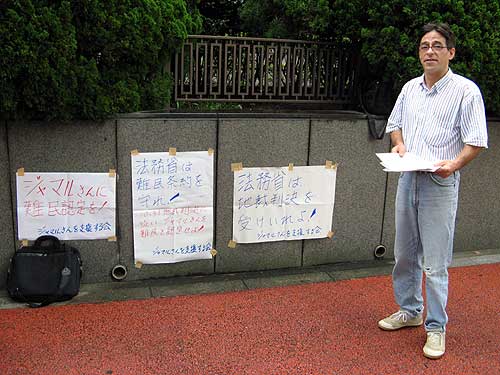 ジャマルさんに
難民認定を!
ジャマルさんを支援する会
法務省は
難民条約を
守れ!
ジャマルさんを
難民と認定せよ!
ジャマルさんを支援する会
法務省は
地裁判決を
受けいれよ!
ジャマルさんを支援する会